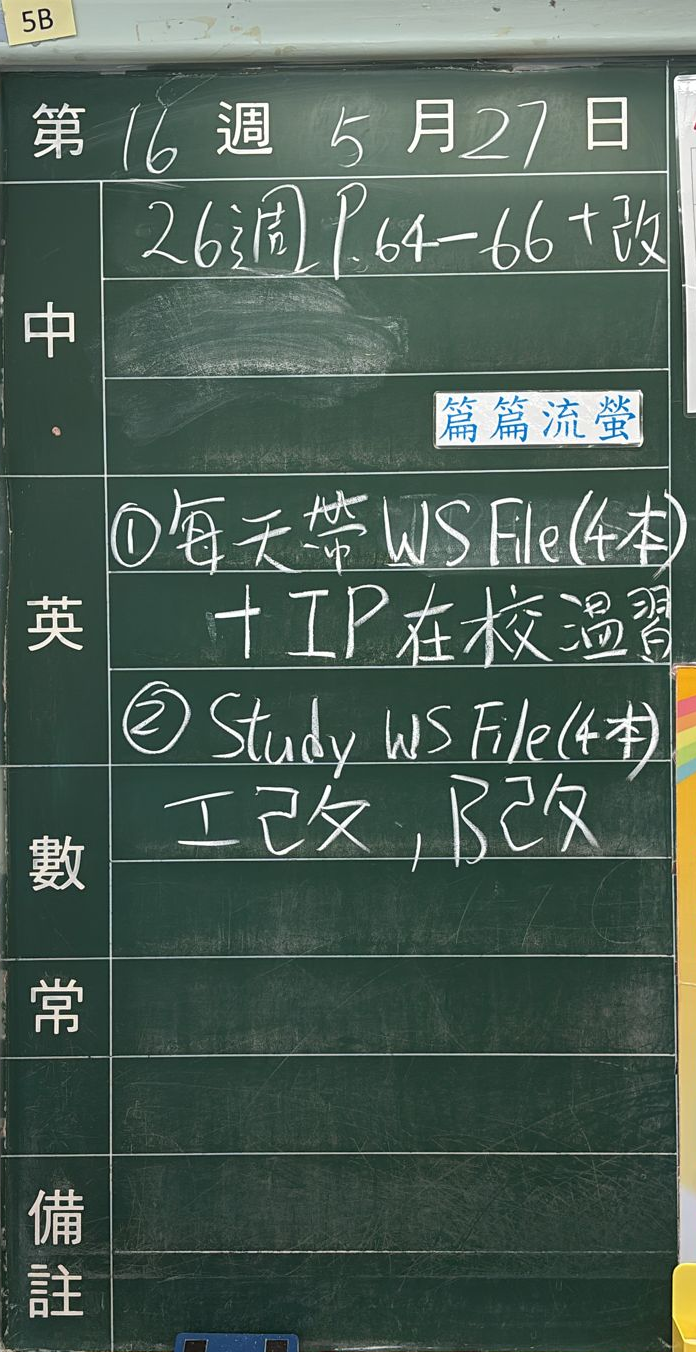 5B
第 16 週 5 月 27 日
中
26週 P.64-66+改
篇篇流螢
英
①每天帶WS File(4本)
+IP在校溫習
② Study WS File(4本)
數
工改,B改
常
備註